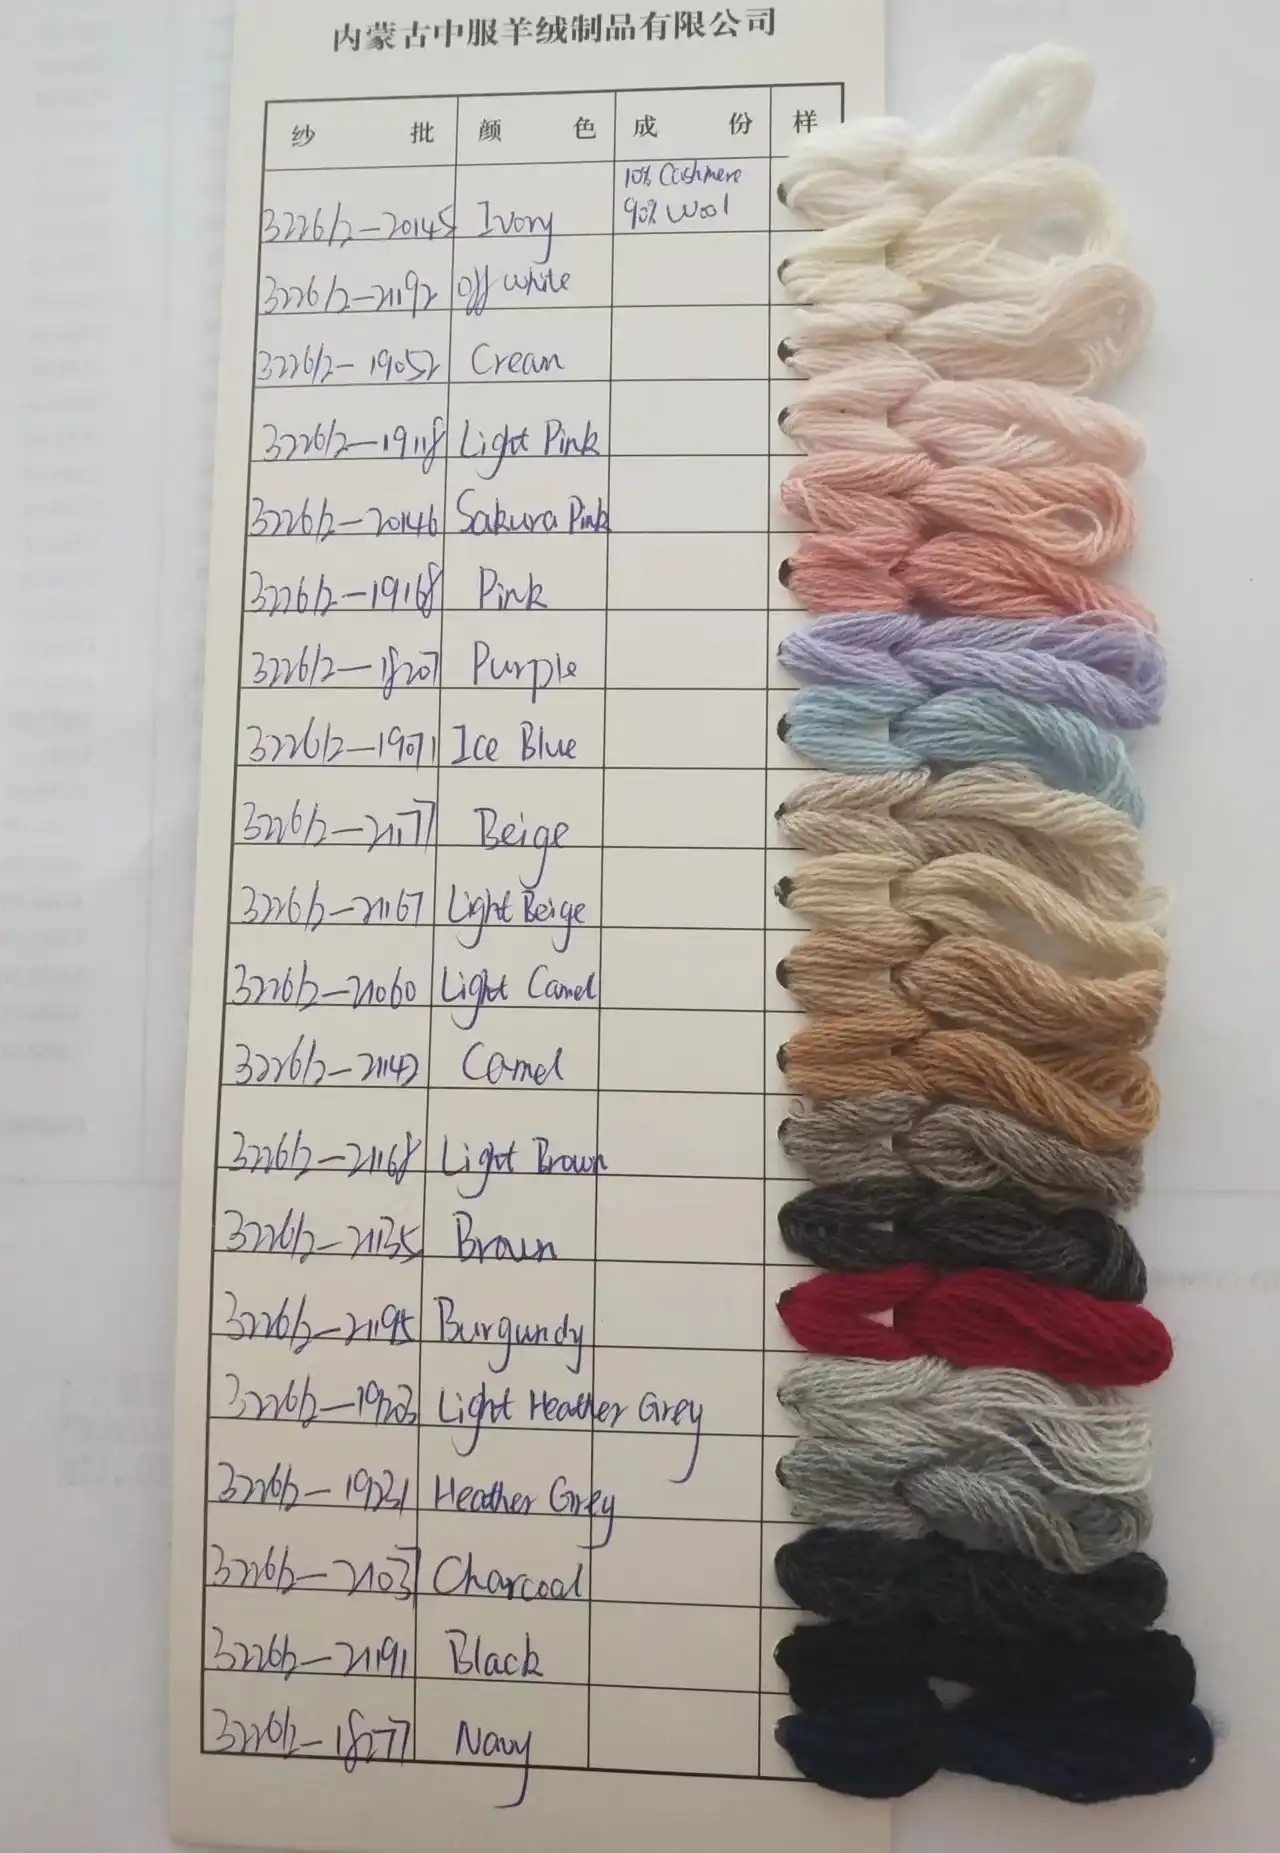 内蒙古中服羊绒制品有限公司
纱 批 颜 色 成 份 样
3226/2-20145 Ivory 10% Cashmere 90% Wool
3226/2-21192 Off White
3226/2-19052 Cream
3226/2-19118 Light Pink
3226/2-20146 Sakura Pink
3226/2-19168 Pink
3226/2-18207 Purple
3226/2-19071 Ice Blue
3226/2-21177 Beige
3226/2-21167 Light Beige
3226/2-21060 Light Camel
3226/2-21142 Camel
3226/2-21168 Light Brown
3226/2-21135 Brown
3226/2-21195 Burgundy
3226/2-19203 Light Heather Grey
3226/2-19231 Heather Grey
3226/2-21037 Charcoal
3226/2-21191 Black
3226/2-18277 Navy